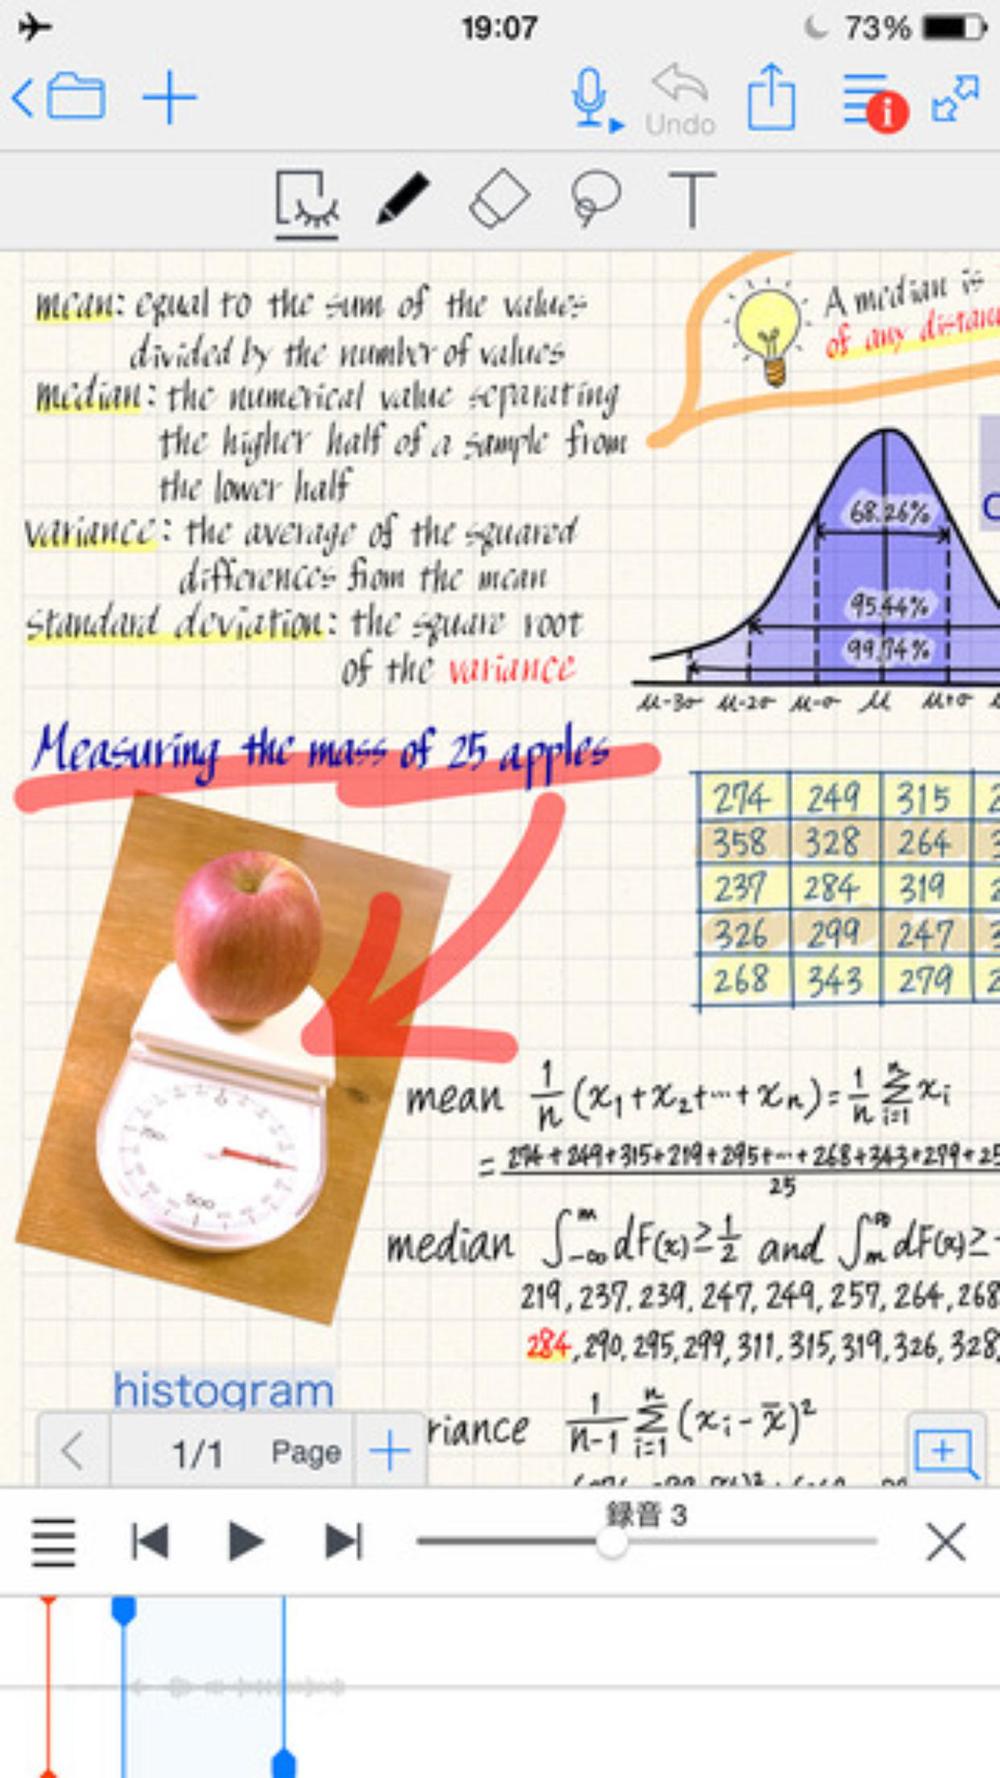 19:07
73%
Undo
T
mean: equal to the sum of the values
divided by the number of values
median: the numerical value separating
the higher half of a sample from
the lower half
variance: the average of the squared
differences from the mean
standard deviation: the square root
of the variance
A median is
of any
68.26%
95.44%
99.74%
μ-3σ μ-2σ μ-σ μ μ+σ
Measuring the mass of 25 apples
274 249 315
358 328 264
237 284 319
326 299 247
268 343 279
500
mean 1/n (x₁+x₂+…+xₙ)=1/n Σᵢ₌₁ⁿ xᵢ
= 274+249+315+219+295+…+268+343+279+25
25
median ∫₋∞ᵐ dF(x)≥1/2 and ∫ₘ∞ dF(x)≥
219, 237, 239, 247, 249, 257, 264, 268
284, 290, 295, 299, 311, 315, 319, 326, 328,
histogram
riance 1/n-1 Σᵢ₌₁ⁿ (xᵢ-x̄)²
1/1 Page
録音 3